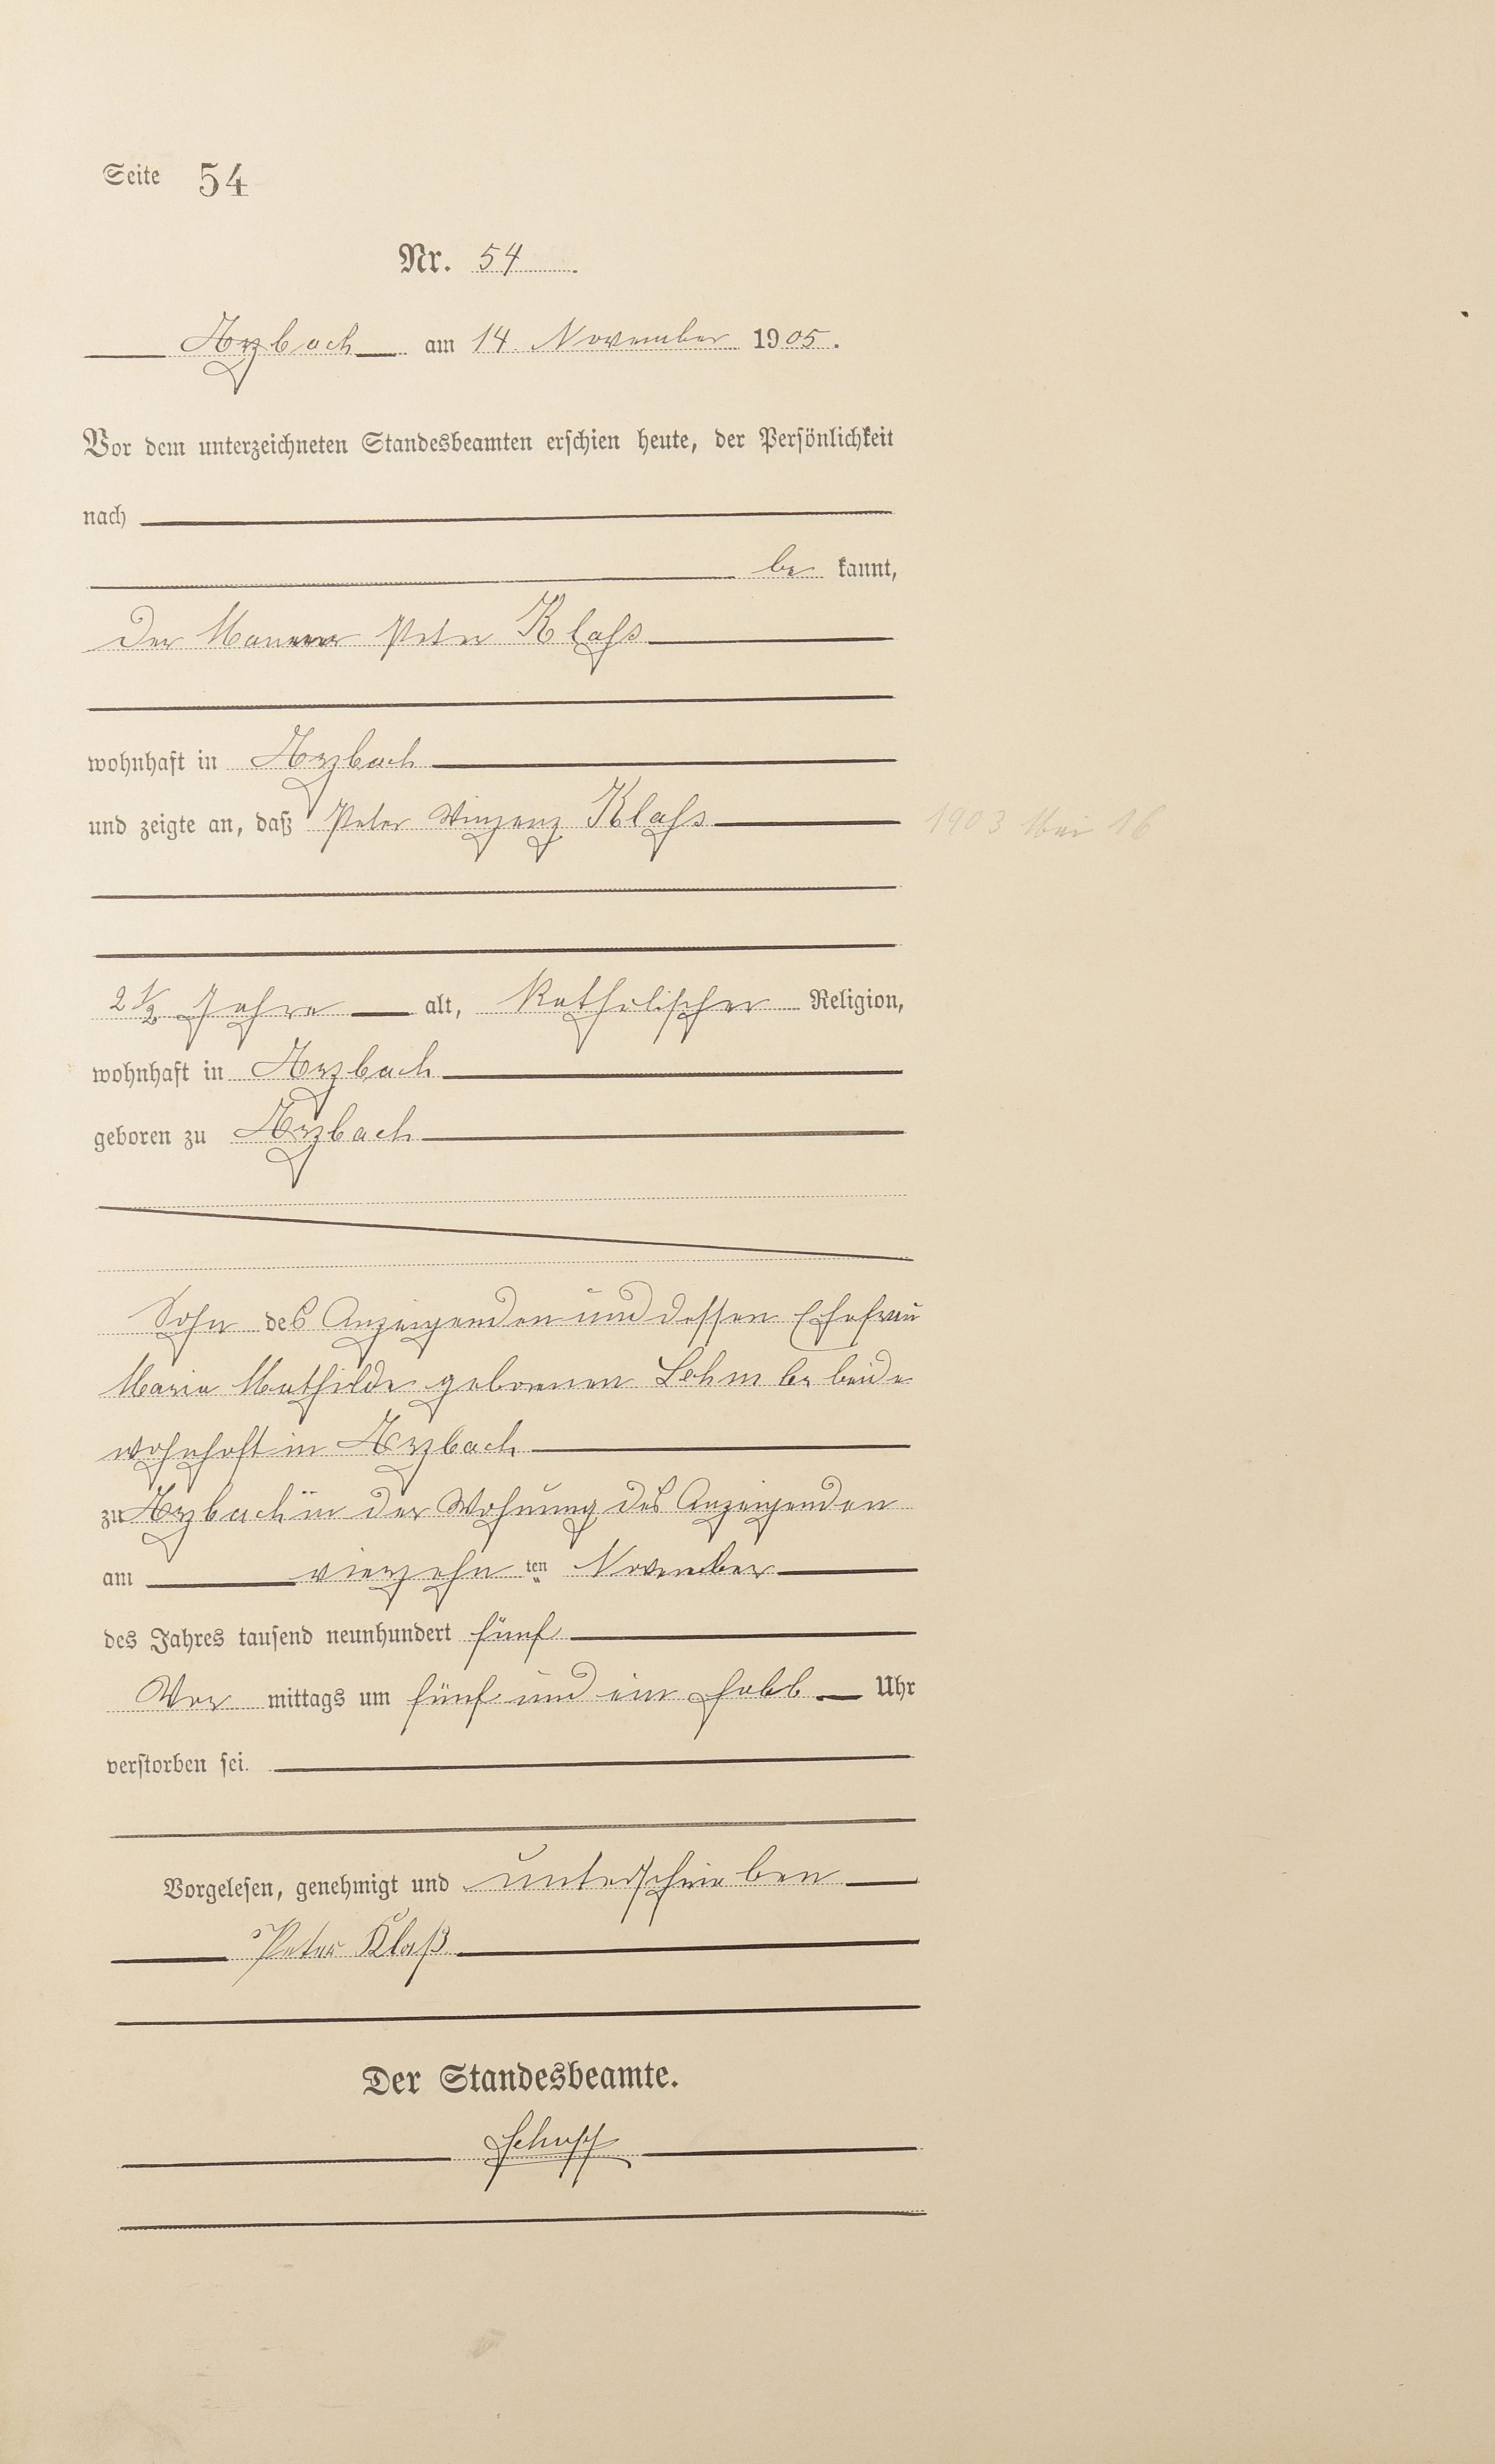 Seite 54
Nr. 54
Arzbach am 14. November 1905.
Vor dem unterzeichneten Standesbeamten erschien heute, der Persönlichkeit
nach
be kannt,
der Maurer Peter Klaß
wohnhaft in Arzbach
und zeigte an, daß Peter Vinzenz Klaß
1903 Mai 16
2 1/2 Jahre alt, katholischer Religion,
wohnhaft in Arzbach
geboren zu Arzbach
Sohn des Anzeigenden und dessen Ehefrau
Maria Mathilde geborenen Lehmler beide
wohnhaft in Arzbach
zu Arzbach in der Wohnung des Anzeigenden
am vierzehn ten November
des Jahres tausend neunhundert fünf
Vor mittags um fünf und ein halb Uhr
verstorben sei.
Vorgelesen, genehmigt und unterschrieben
Peter Klaß
Der Standesbeamte.